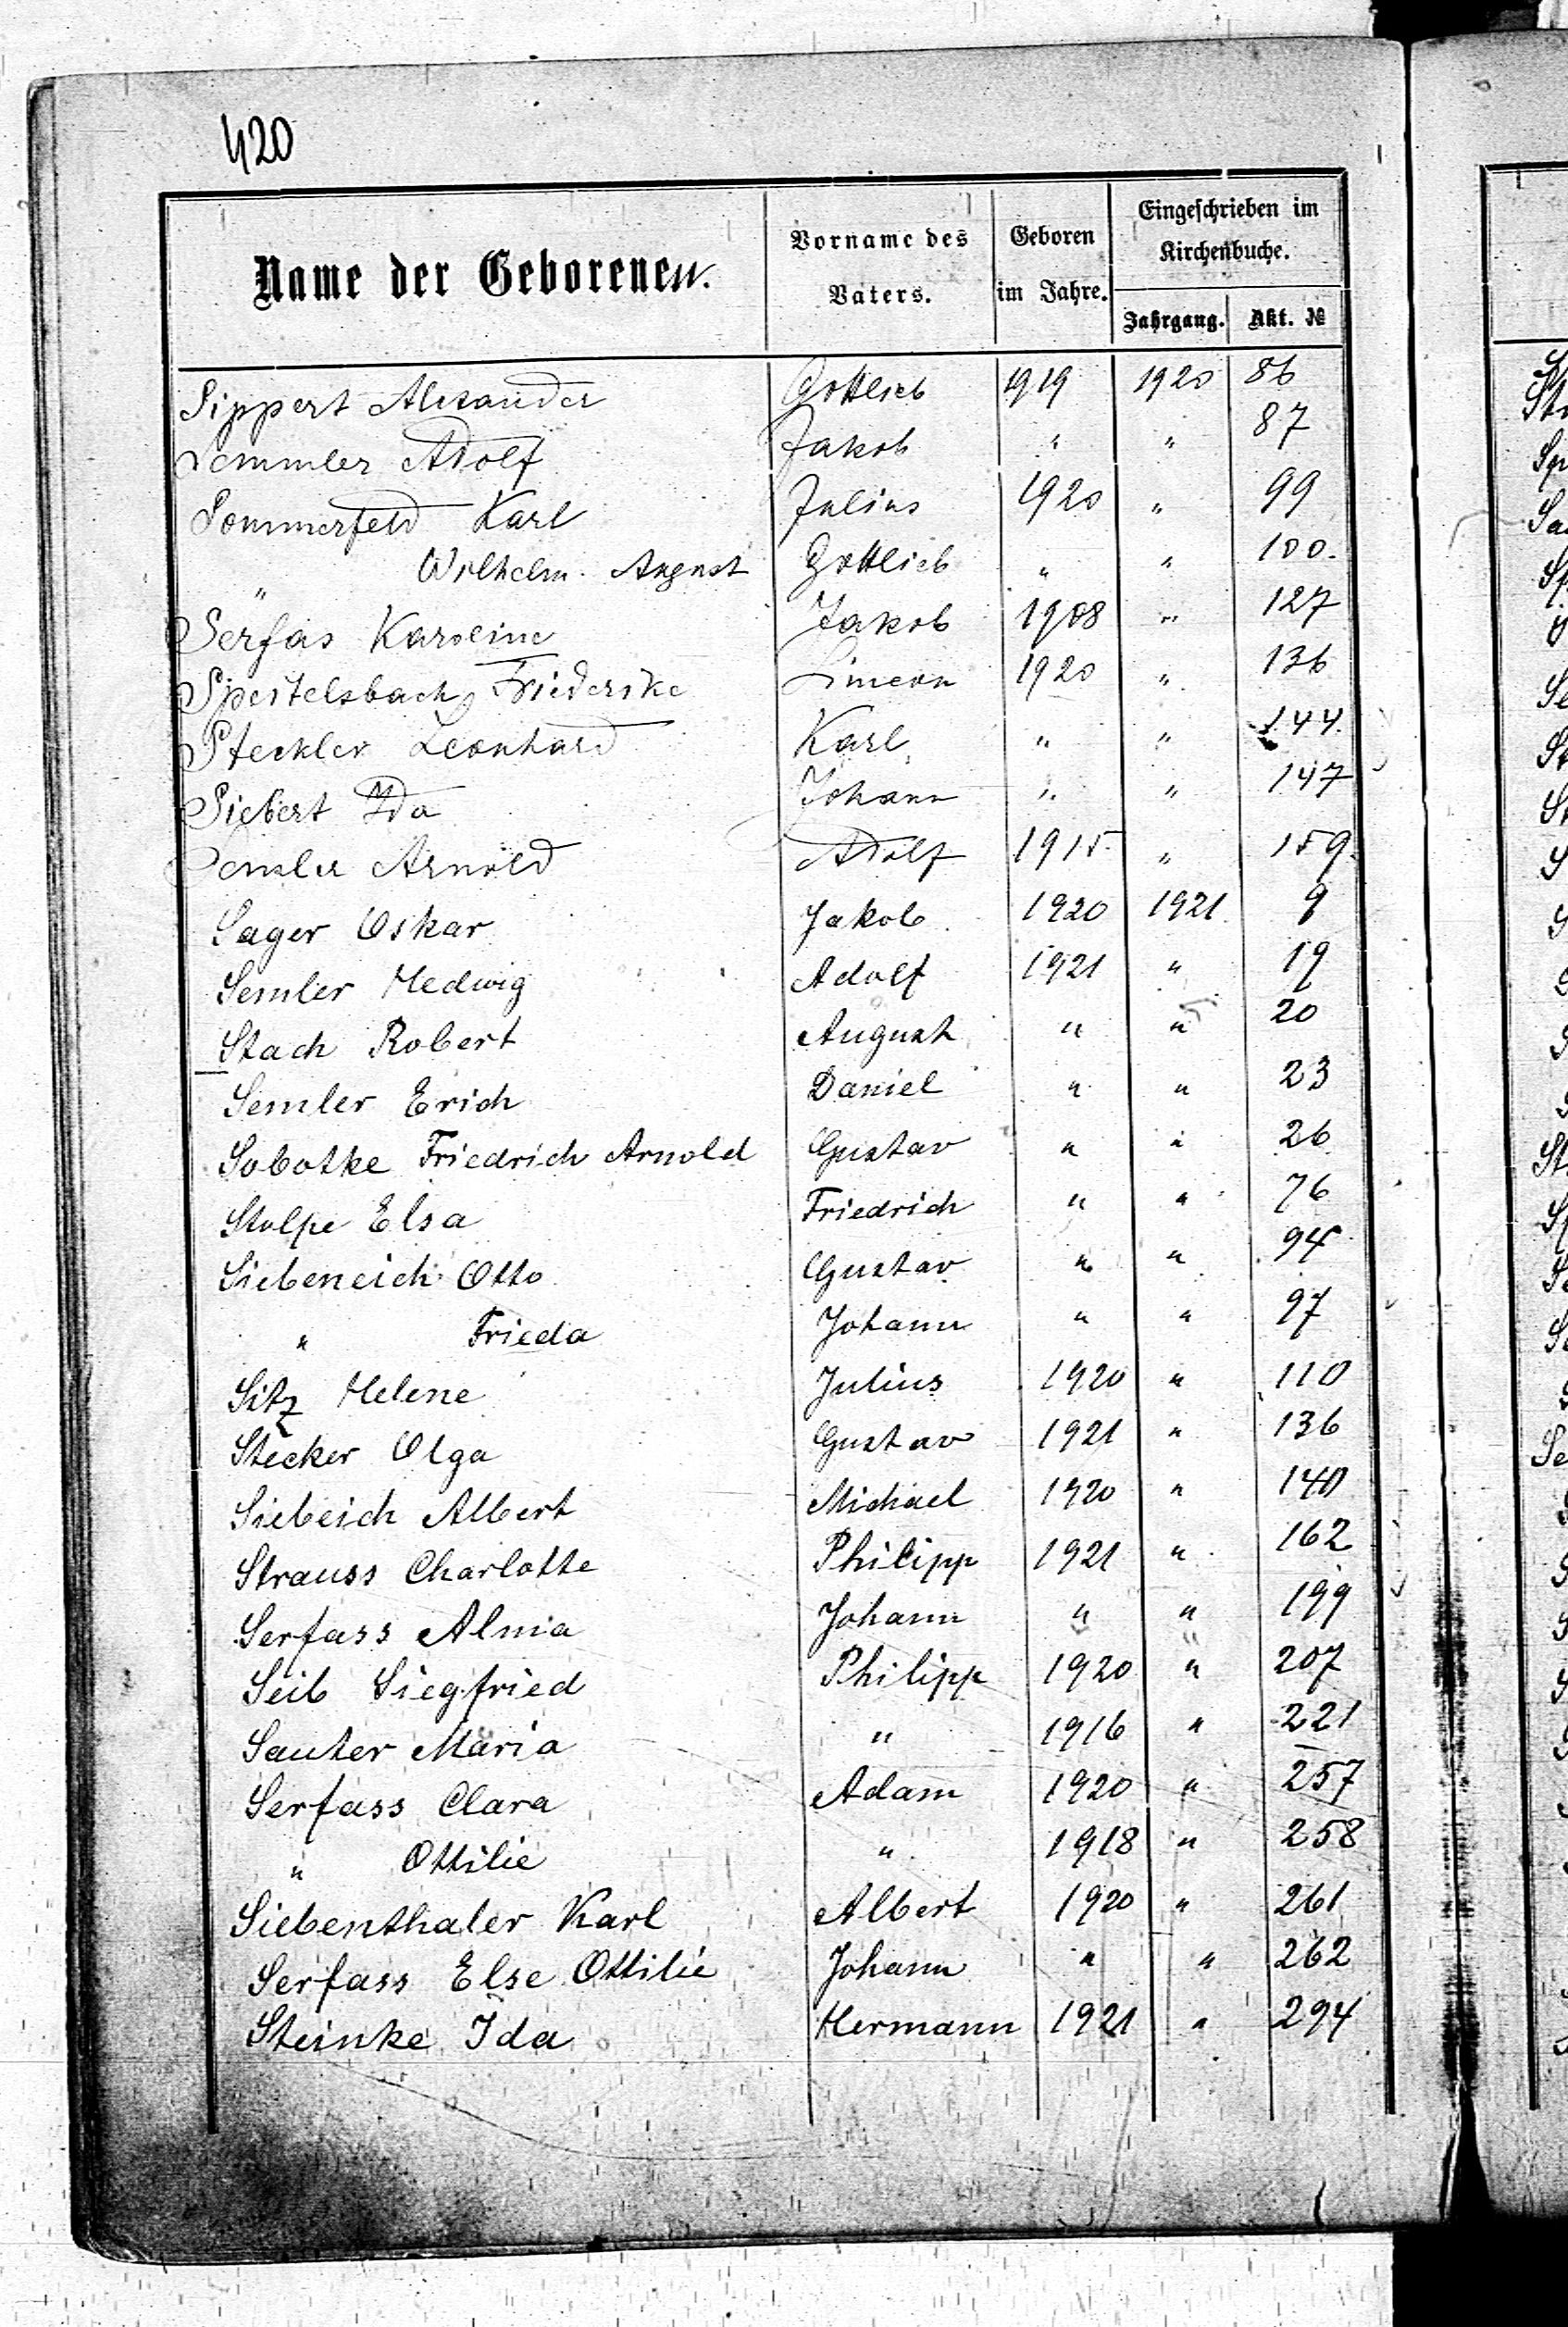 420
Name der Geborenen.
Vorname des Vaters.
Geboren im Jahre.
Eingeschrieben im Kirchenbuche.
Jahrgang. Akt. №
Sippert Alexander Gottlieb 1919 1920 86
Semmler Adolf Jakob " " 87
Sommerfeld Karl Julius 1920 " 99
" Wilhelm August Gottlieb " " 100.
Serfas Karoline Jakob 1908 " 127
Speitelsbach Friederike Simeon 1920 " 136
Steckler Leonhard Karl " " 144.
Siebert Ida Johann " " 147
Semler Arnold Adolf 1915 " 159.
Sager Oskar Jakob 1920 1921 9
Semler Hedwig Adolf 1921 " 19
Stach Robert August " " 20
Semler Erich Daniel " " 23
Sobotke Friedrich Arnold Gustav " " 26
Stolpe Elsa Friedrich " " 76
Siebeneich Otto Gustav " " 94
" Frieda Johann " " 97
Sitz Helene Julius 1920 " 110
Stecker Olga Gustav 1921 " 136
Siebeich Albert Michael 1920 " 140
Strauss Charlotte Philipp 1921 " 162
Serfass Alma Johann " " 199
Seib Siegfried Philipp 1920 " 207
Sauter Maria " 1916 " 221
Serfass Clara Adam 1920 " 257
" Ottilie " 1918 " 258
Siebenthaler Karl Albert 1920 " 261
Serfass Else Ottilie Johann " " 262
Steinke Ida Hermann 1921 " 294